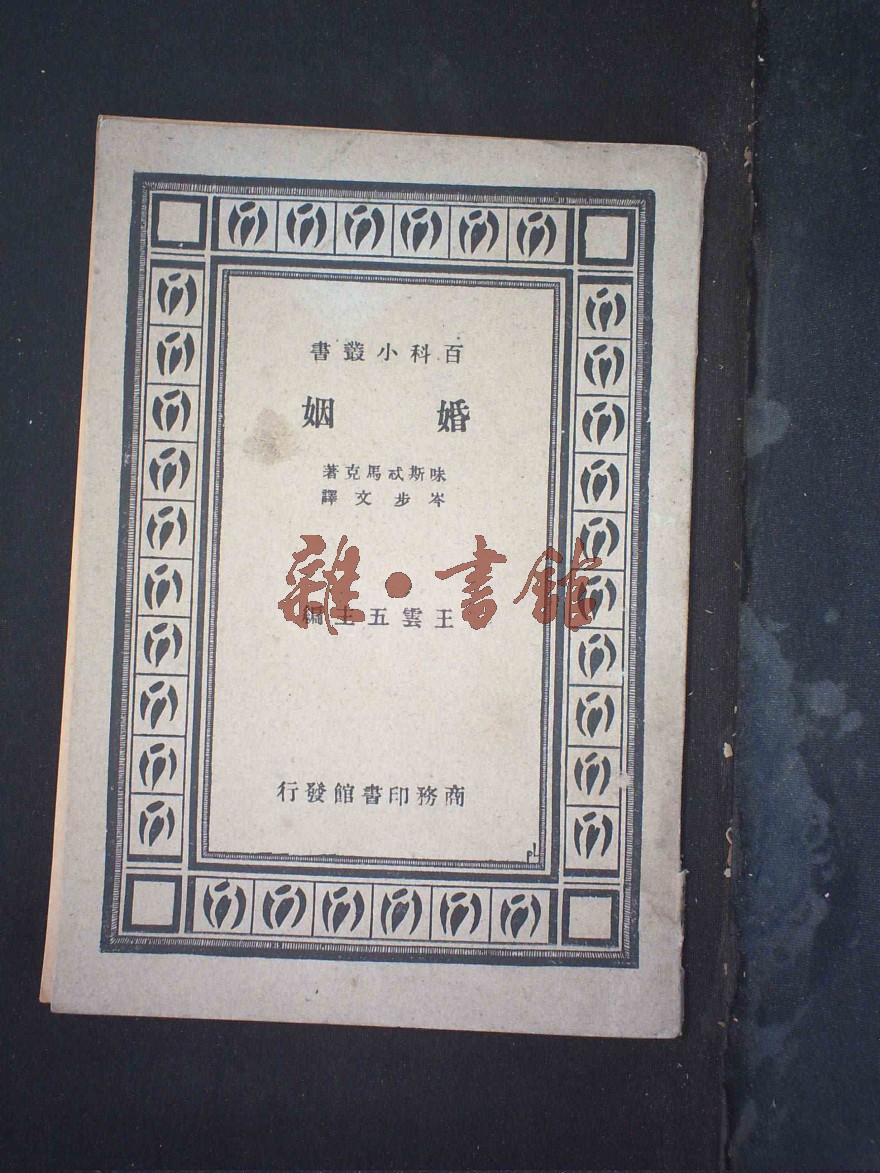 百科小叢書
婚姻
味斯忒馬克著
岑步文譯
雜·書館
王雲五主編
商務印書館發行
pL